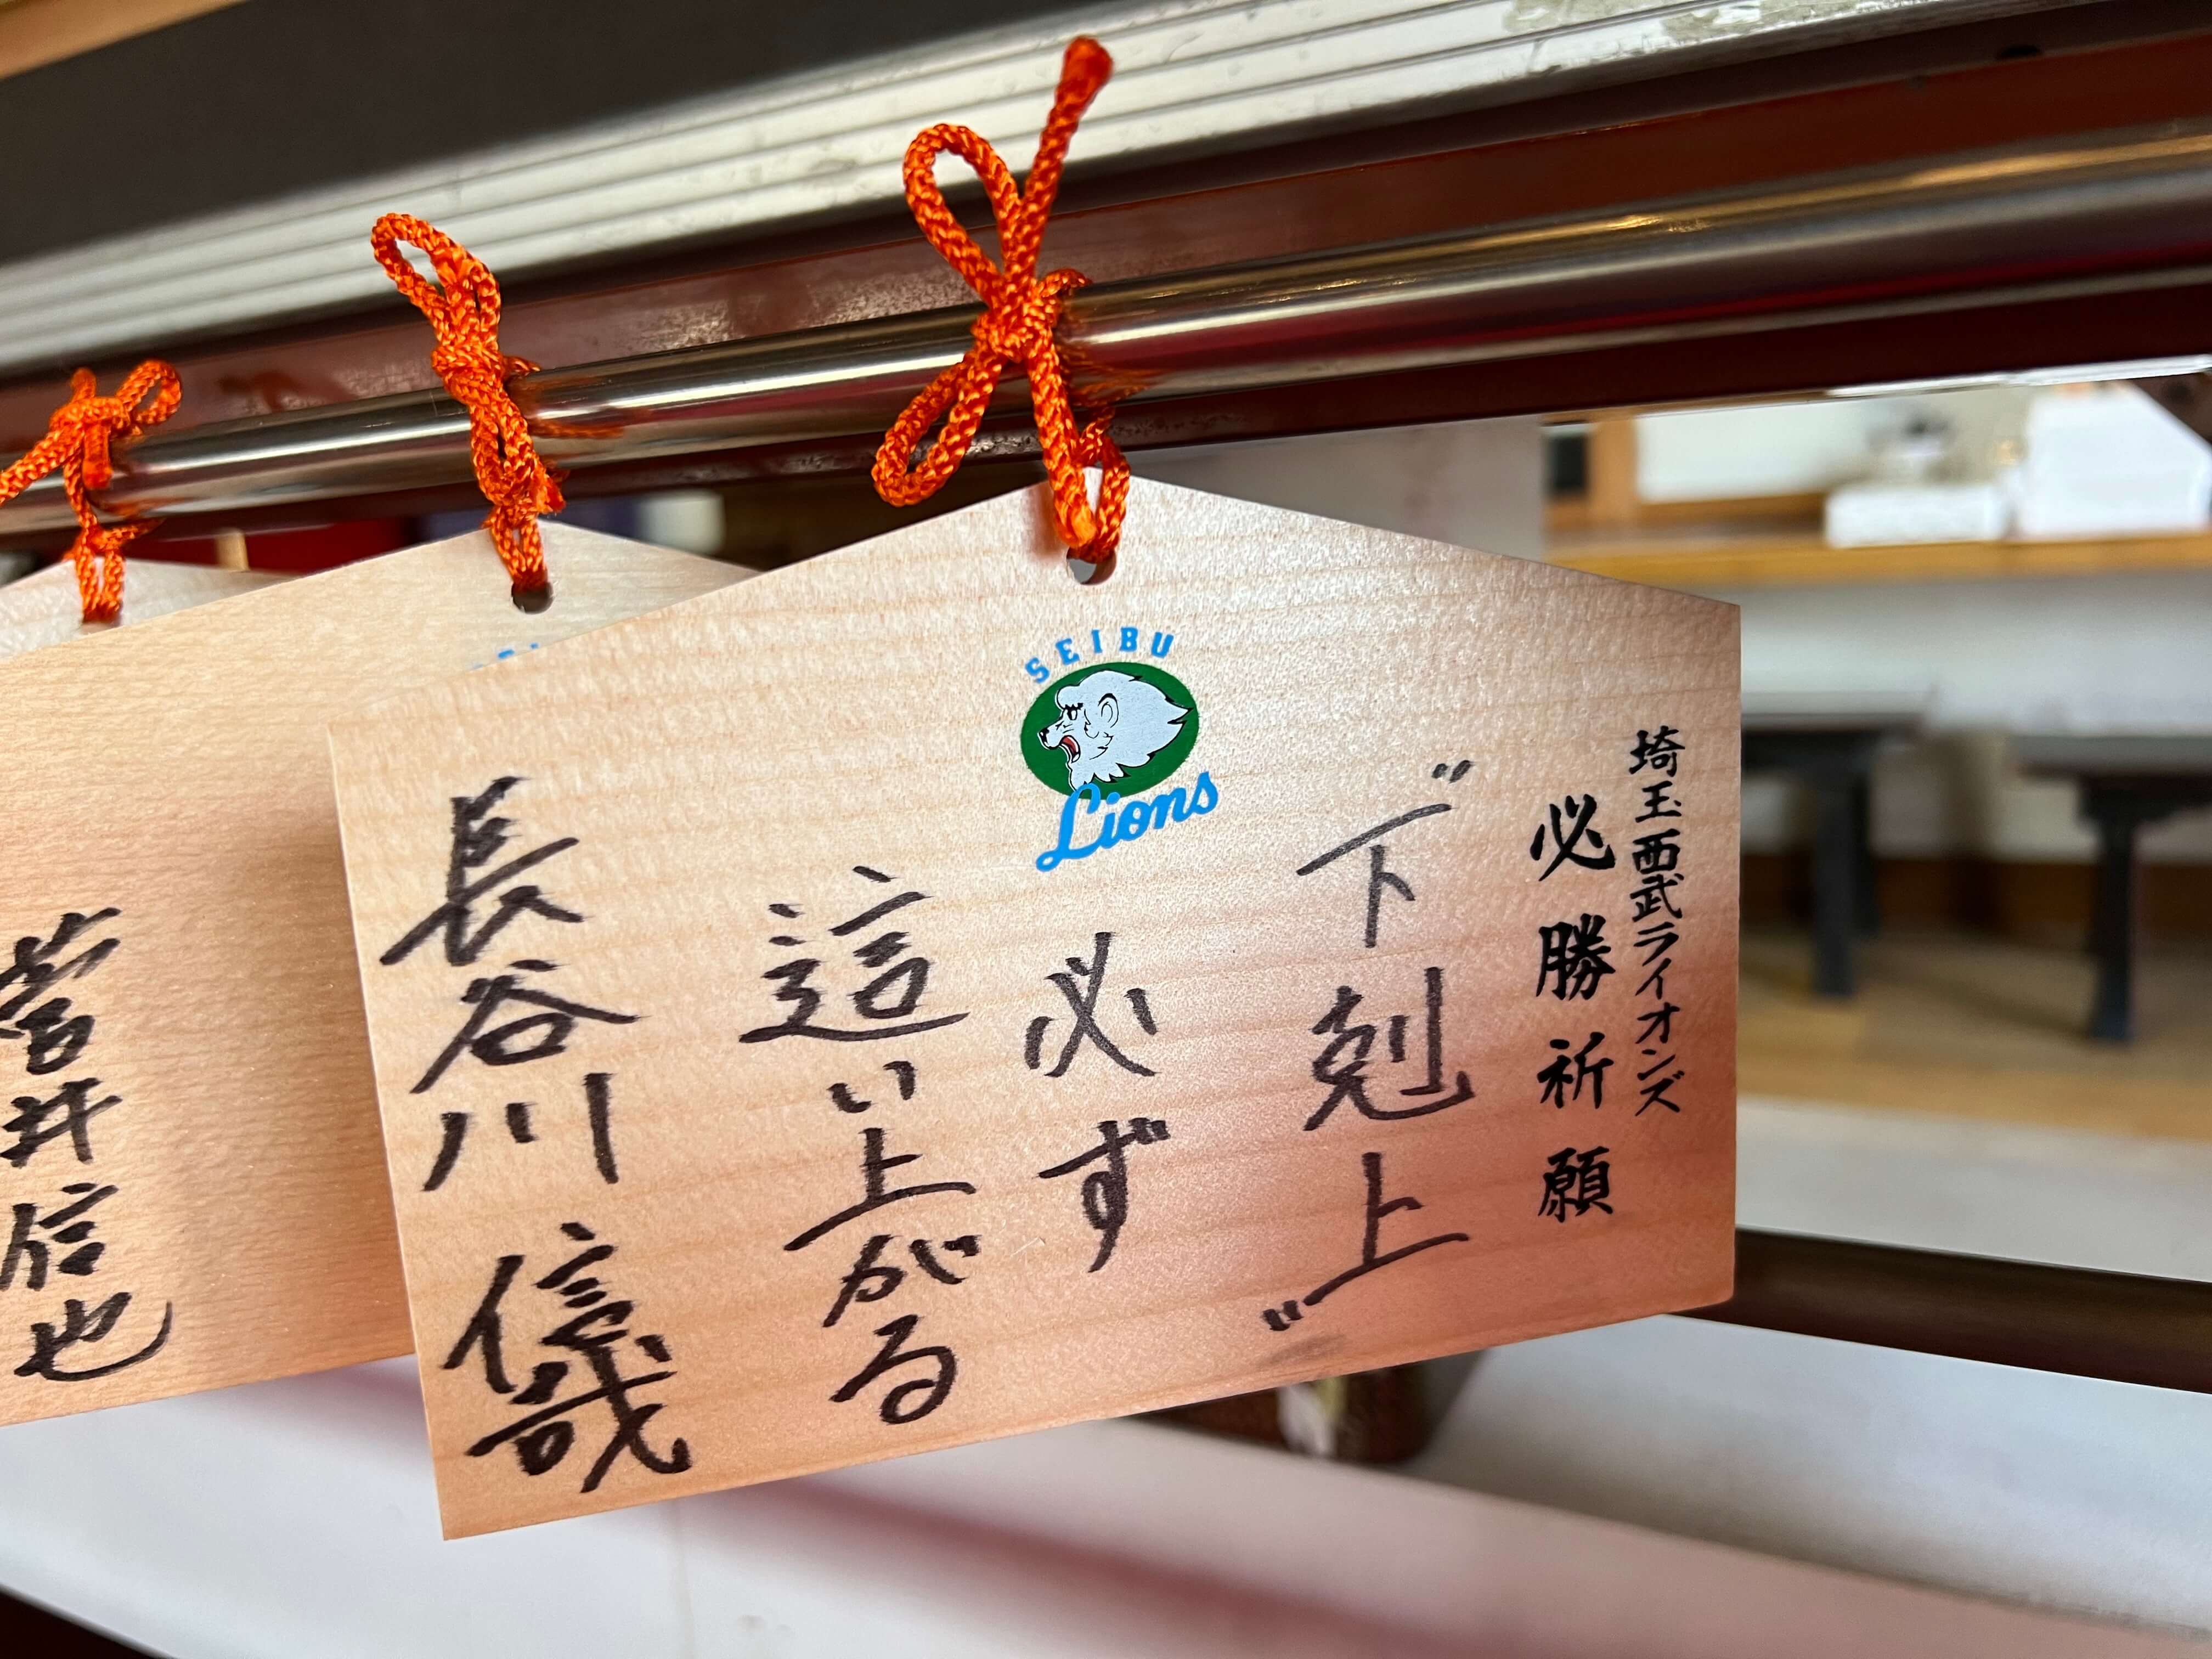 埼玉西武ライオンズ
必勝祈願
"下剋上"
必ず
這い上がる
長谷川信哉
SEIBU
Lions
菅井信也